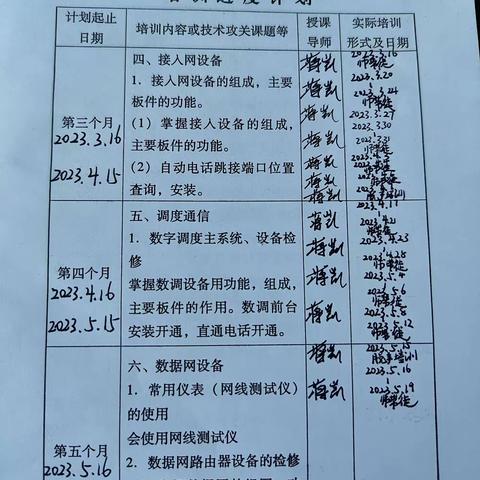 培训进度计划
计划起止
日期
培训内容或技术攻关课题等
授课
导师
实际培训
形式及日期
第三个月
2023.3.16
2023.4.15
四、接入网设备
1. 接入网设备的组成，主要
板件的功能。
(1) 掌握接入设备的组成，
主要板件的功能。
(2) 自动电话跳接端口位置
查询，安装。
蒋凯
蒋凯
蒋凯
蒋凯
蒋凯
蒋凯
蒋凯
2023.3.16
师带徒
2023.3.20
2023.3.24
师带徒
2023.3.27
2023.3.30
2023.3.31
师带徒
脱产培训
2023.4.11
第四个月
2023.4.16
2023.5.15
五、调度通信
1. 数字调度主系统、设备检
修
掌握数调设备用功能，组成，
主要板件的作用。数调前台
安装开通，直通电话开通。
蒋凯
蒋凯
蒋凯
蒋凯
2023.4.21
师带徒
2023.4.23
2023.4.28
师带徒
2023.5.4
2023.5.6
师带徒
2023.5.8
2023.5.12
师带徒
第五个月
2023.5.16
六、数据网设备
1. 常用仪表（网线测试仪）
的使用
会使用网线测试仪
2. 数据网路由器设备的检修
蒋凯
蒋凯
2023.5.15
脱产培训
2023.5.16
2023.5.19
师带徒